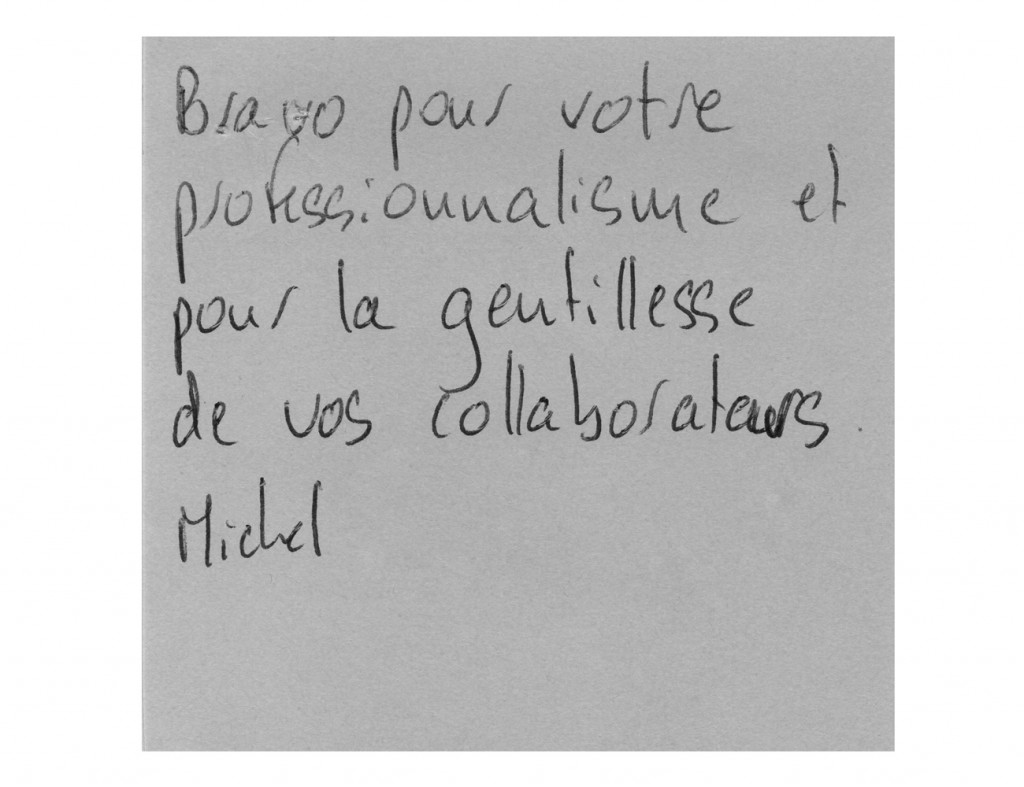 Bravo pour votre
professionnalisme et
pour la gentillesse
de vos collaborateurs.
Michel